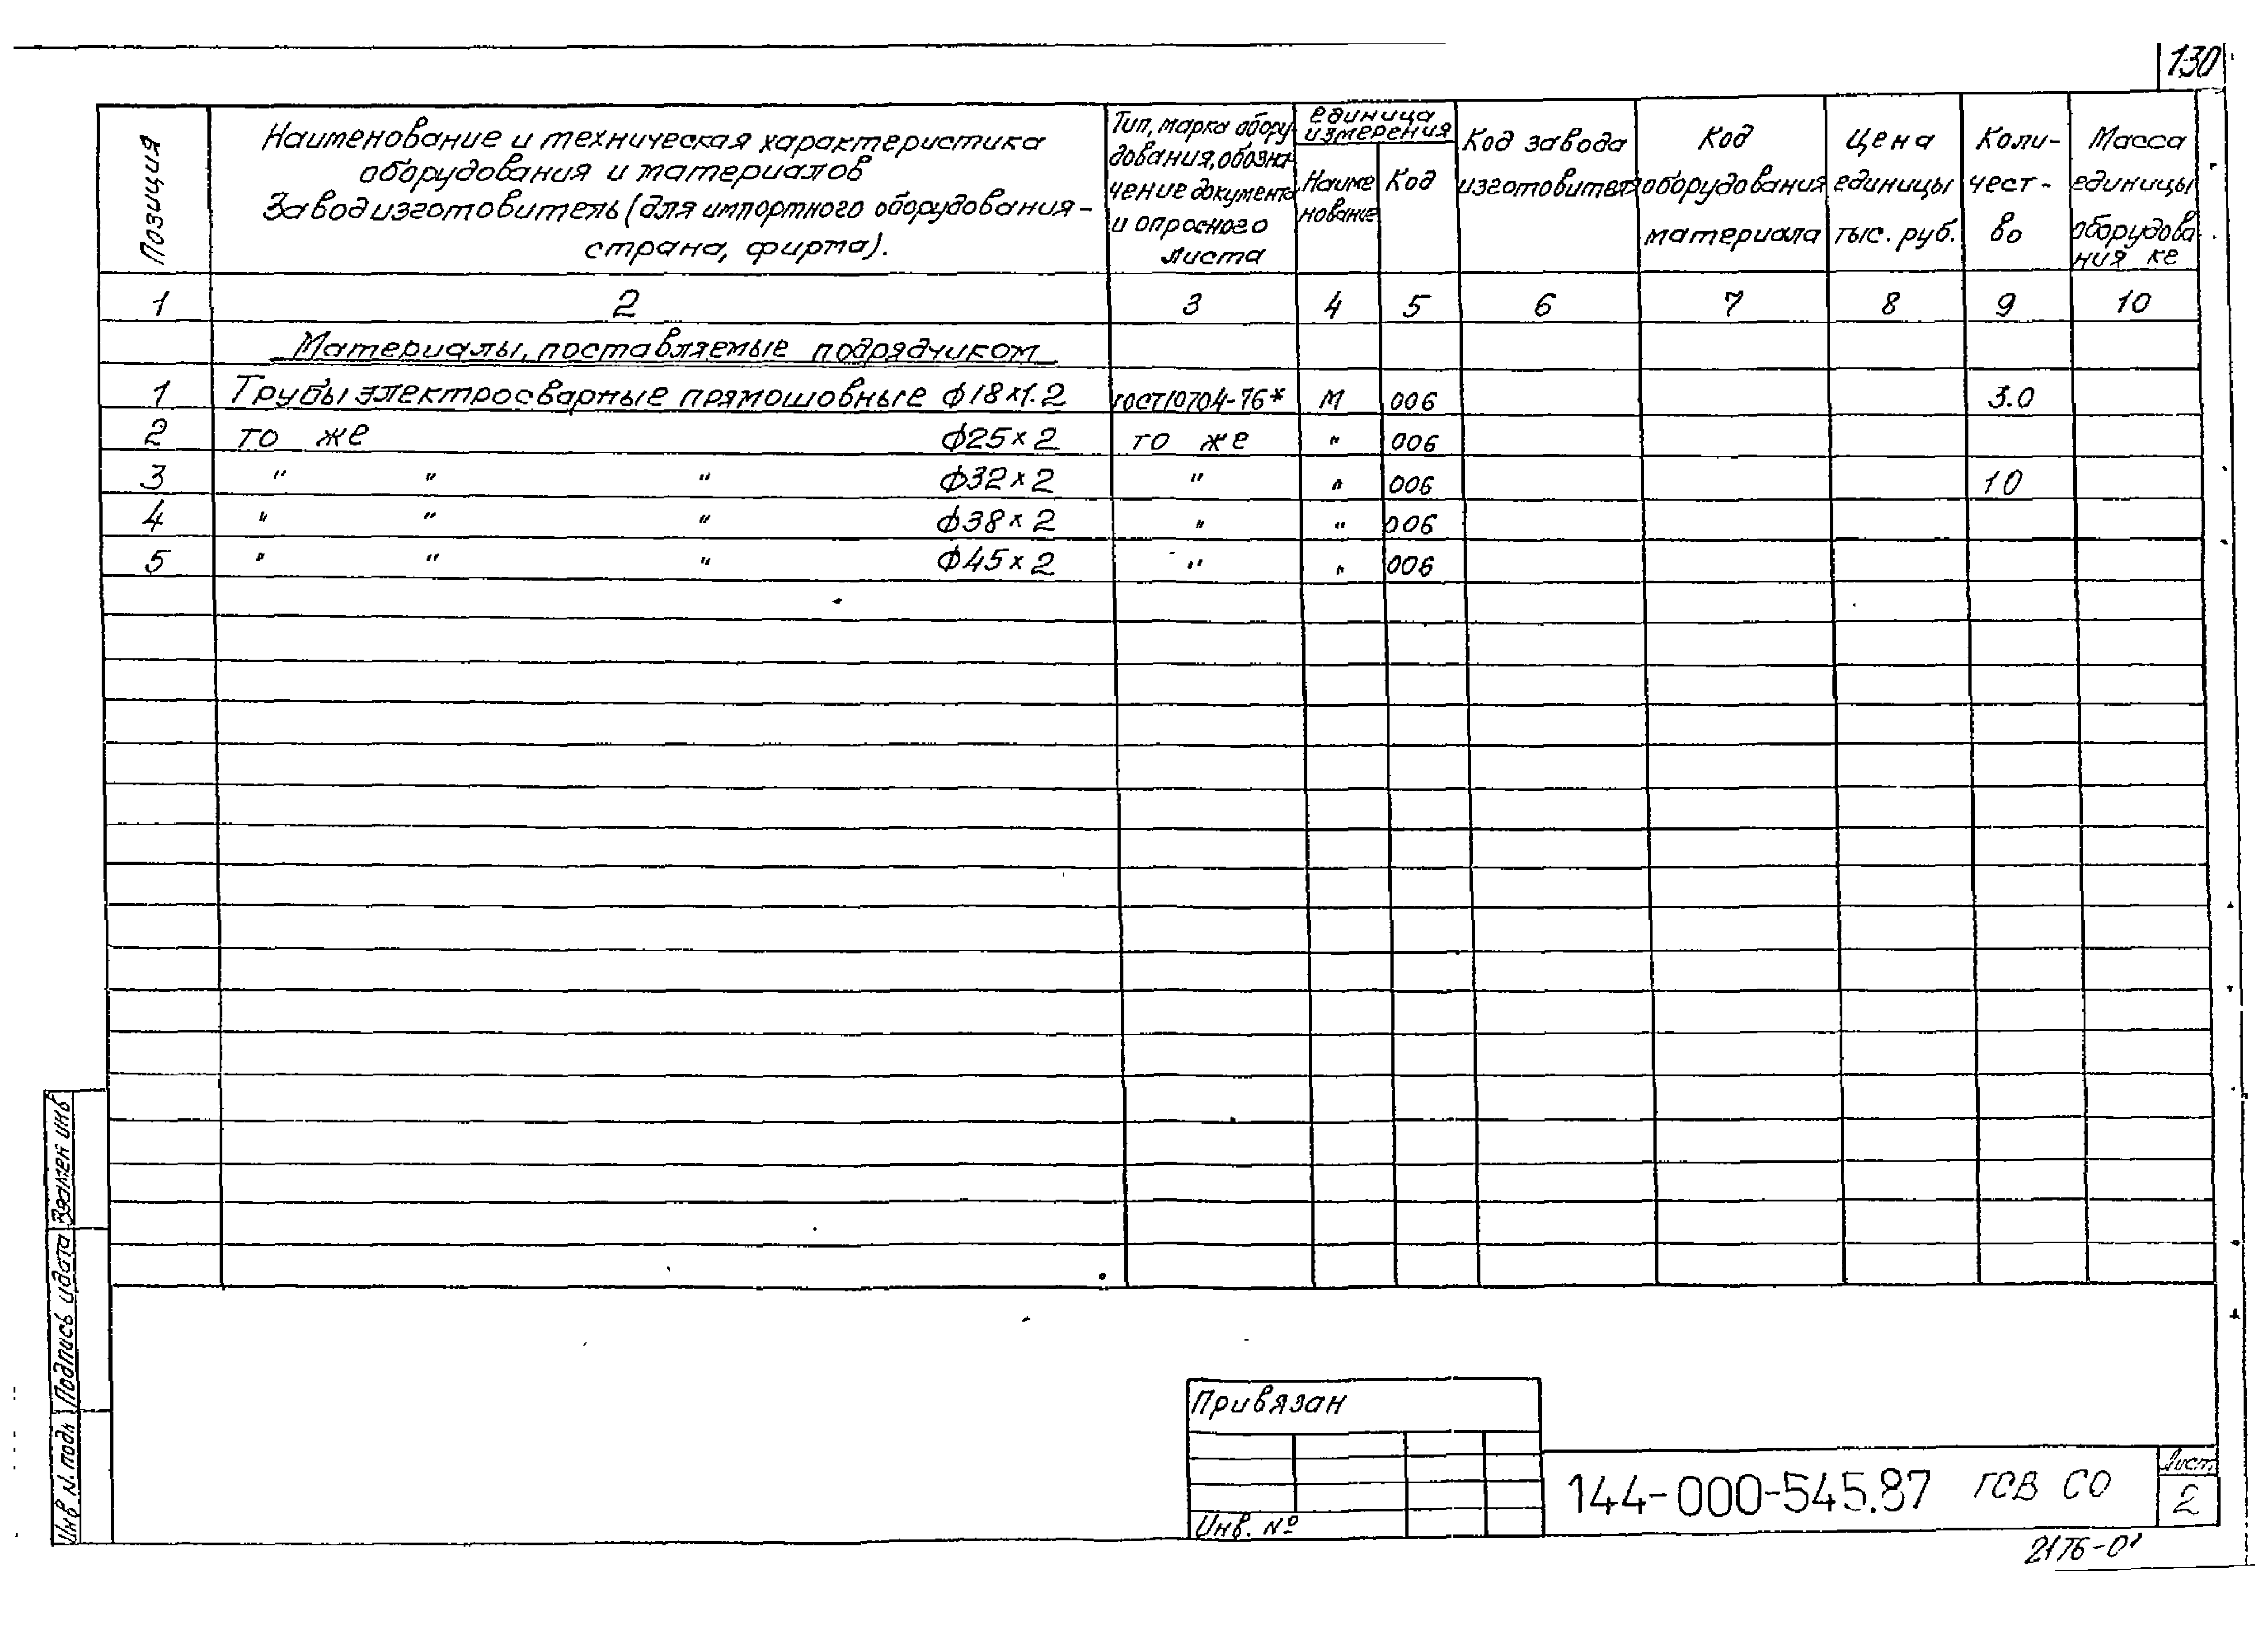 130
Позиция
Наименование и техническая характеристика
оборудования и материалов
Завод изготовитель (для импортного оборудования -
страна, фирма).
Тип, марка обору-
дования, обозна-
чение документа
и опросного
листа
единица
измерения
Наиме
нование
Код
Код завода
изготовителя
Код
оборудования
материала
Цена
единицы
тыс. руб.
Коли-
чест-
во
Масса
единицы
оборудова
ния кг
1 2 3 4 5 6 7 8 9 10
Материалы, поставляемые подрядчиком
1 Трубы электросварные прямошовные ф18×1.2 ГОСТ10704-76* М 006 3.0
2 то же ф25×2 то же " 006
3 " " " ф32×2 " " 006 10
4 " " " ф38×2 " " 006
5 " " " ф45×2 " " 006
Взамен инв
Подпись и дата
Инв N. подл
Привязан
Инв. №
144-000-545.87 ГСВ СО
Лист
2
2176-01